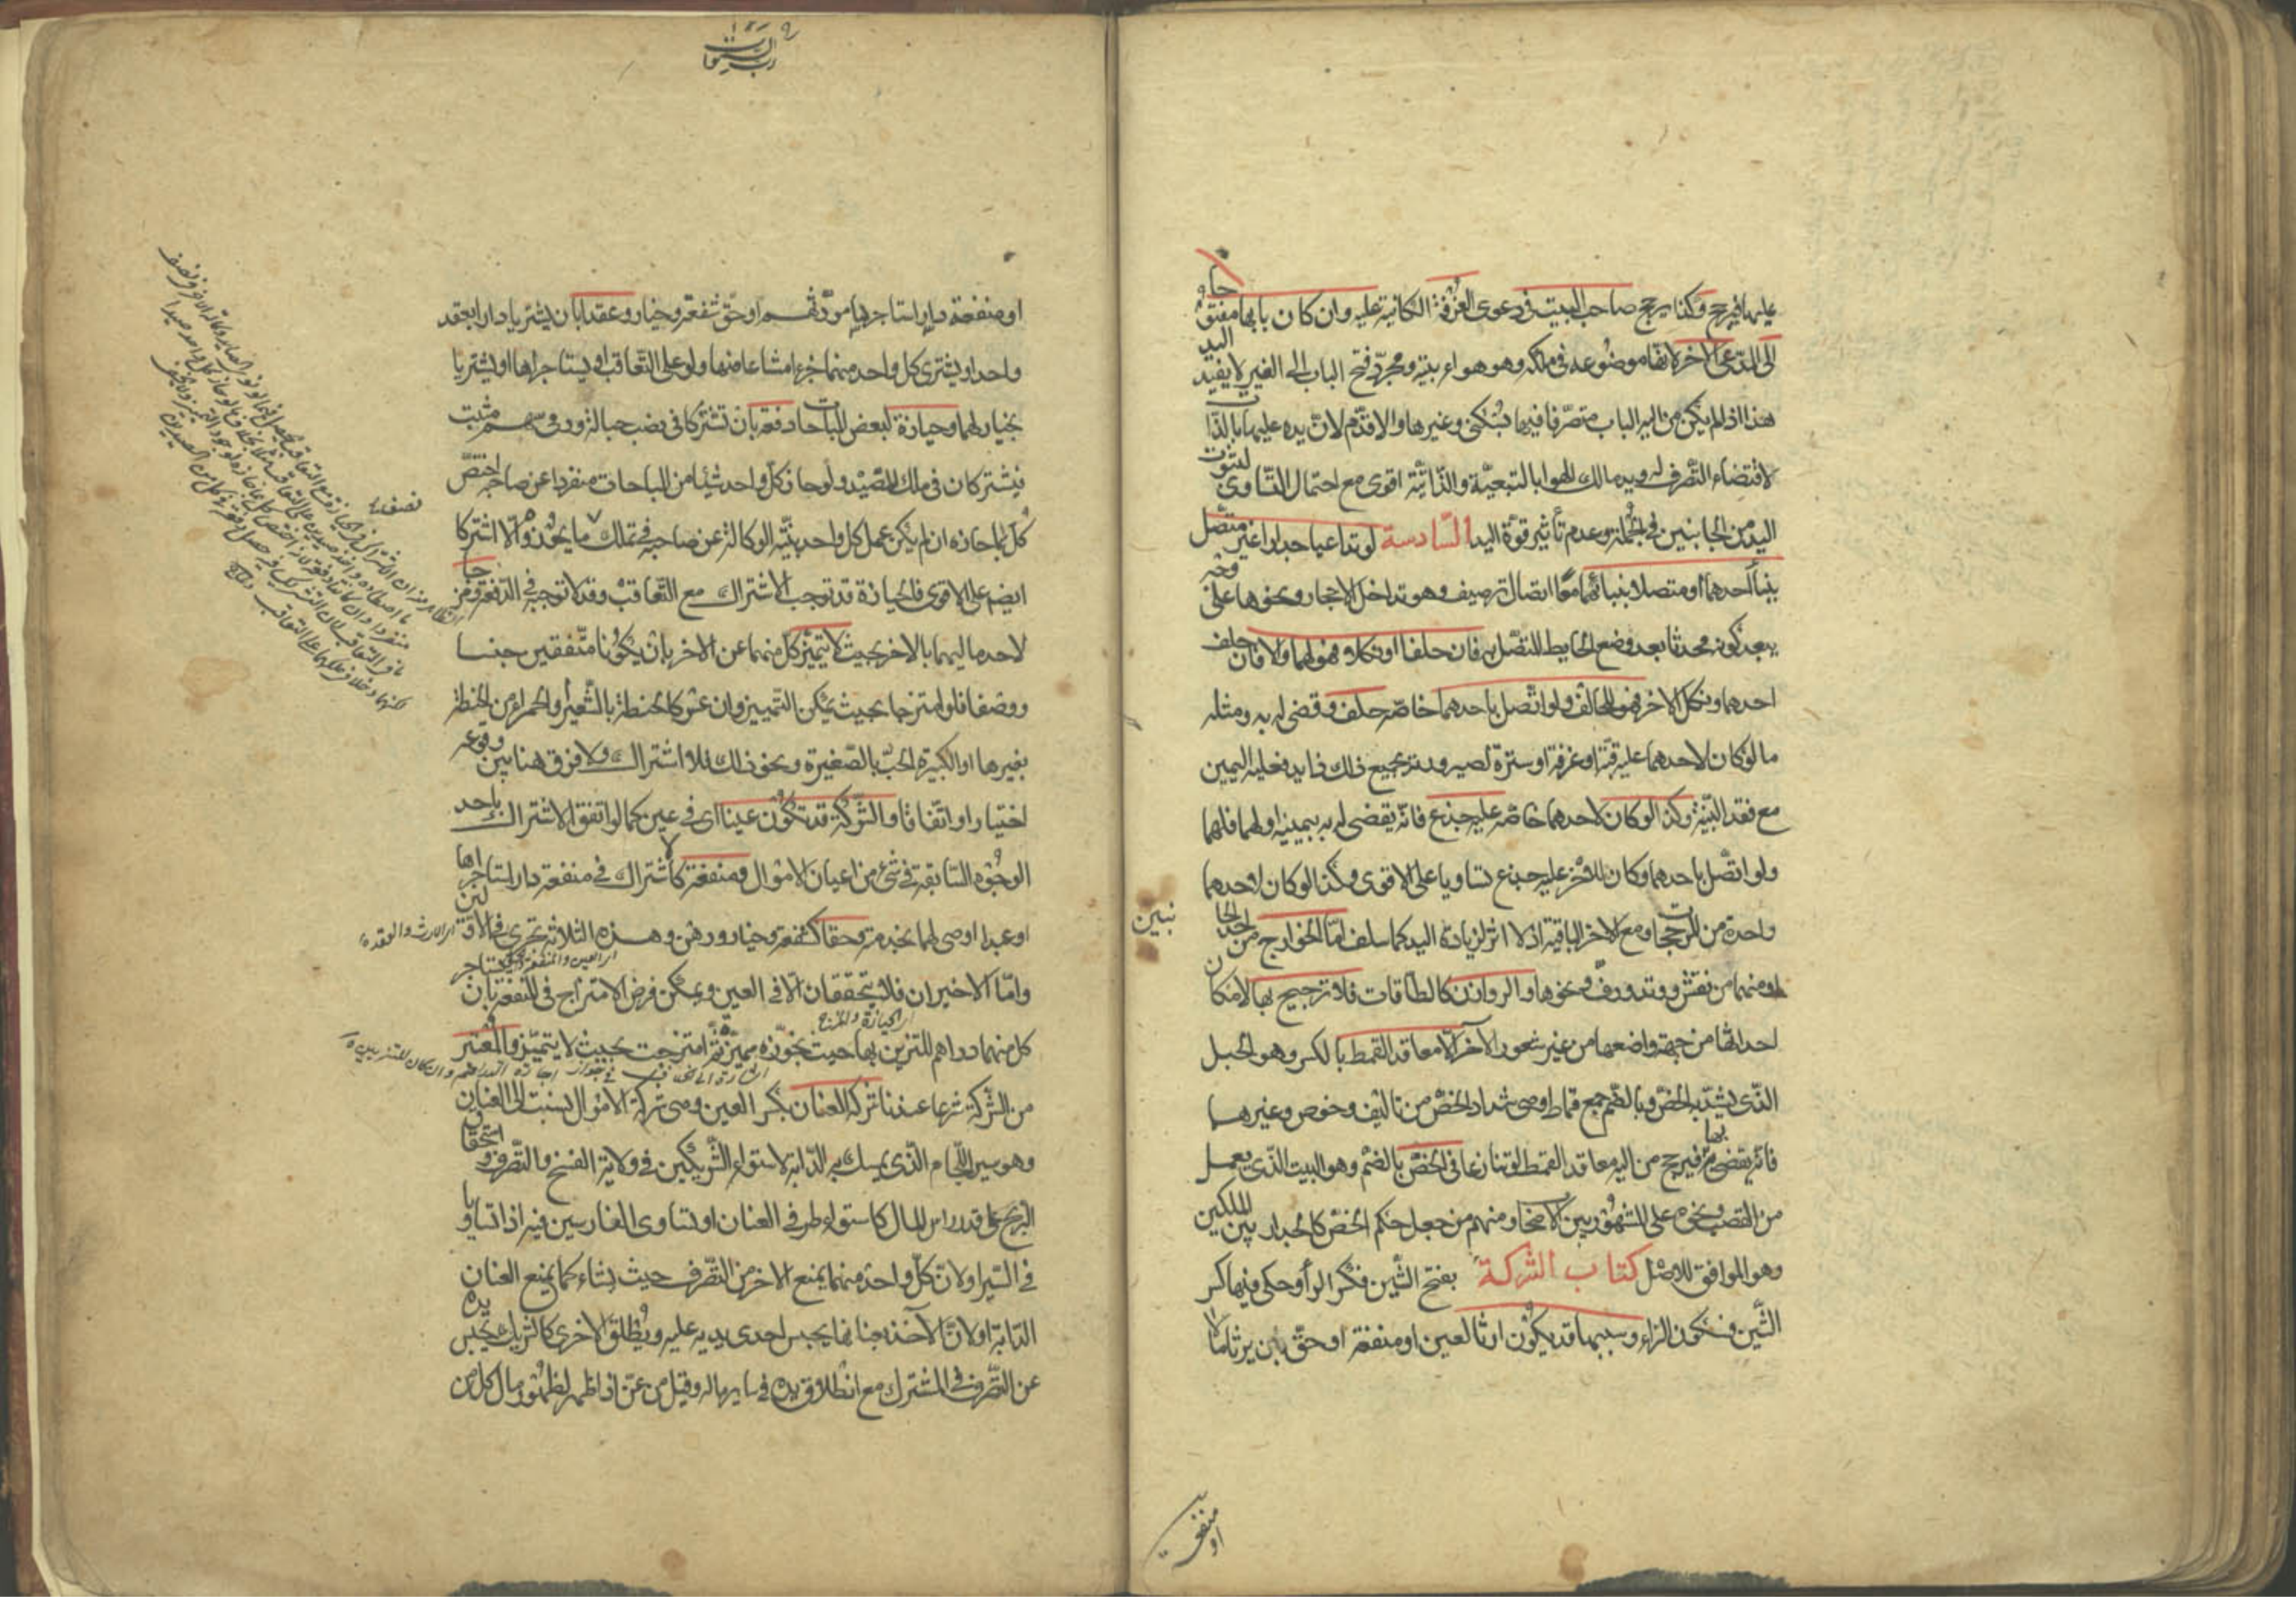 عليها فيرجح وكذا يرجح صاحب البيت في دعوى الغرفة الكائنة عليه وان كان بابها مفتوحا
الى المدعى الاخر لانها موضوعه في ملكه وهو هواء بيته ومجرد فتح الباب الى الغير لا يفيد اليد
هذا اذا لم يكن من اليه الباب متصرفا فيها بسكنى وغيرها والا قدم لان يده عليها بالذات
لاقتضاء التصرف له ويد مالك الهوا بالتبعية والذاتية اقوى مع احتمال التساوى لثبوت
اليد من الجانبين في الجملة وعدم تأثير قوة اليد السادسة لو تداعيا جدارا غير متصل
ببناء احدهما او متصلا ببنائهما معا اتصال ترصيف وهو تداخل الاحجار ونحوها على وجه
يبعد كونه محدثا بعد وضع الحايط المتصل به فان حلفا او نكلا فهو لهما والا فان حلف
احدهما ونكل الاخر فهو للحالف ولو اتصل باحدهما خاصه حلف وقضى له به ومثله
ما لو كان لاحدهما عليه قبة او غرفة او سترة لصيرورته بجميع ذلك ذا يد فعليه اليمين
مع فقد البينة وكذا لو كان لاحدهما خاصه عليه جذع فانه يقضى له به بيمينه او لهما فلهما
ولو اتصل باحدهما وكان للاخر عليه جذع تساويا على الاقوى وكذا لو كان لاحدهما
واحدة من المرجحات ومع الاخر الباقية اذ لا اثر لزيادة اليد كما سلف اما الخوارج من احد الجا
نبين
او منهما من نقش ووتد ورف ونحوها والروازن كالطاقات فلا ترجيح بها لامكان
احداثها من جهة واضعها من غير شعور الآخر الا معاقد القمط بالكسر وهو الحبل
الذى يشد به الخص وبالضم جمع قماط وهى شداد الخص من ليف وخوص وغيرهما
فانه يقضى بها فيرجح من اليه معاقد القمط لو تنازعا في الخص بالضم وهو البيت الذى يعمل
من القصب ونحوه على المشهور بين الاصحاب ومنهم من جعل حكم الخص كالجدار بين الملكين
وهو الموافق للاصل كتاب الشركة بفتح الشين فكسر الراء وحكى فيها كسر
الشين فسكون الراء وسببها قد يكون ارثا لعين او منفعة او حق بان يرثا مالا
او منفعت
او منفعة دار استاجرها مورثهم او حق شفعة وخيار وعقدا بان يشتريا دارا بعقد
واحد او يشترى كل واحد منهما جزءا مشاعا منها ولو على التعاقب او يستاجراها او يشتريا
بخيار لهما وحيازة لبعض المباحات دفعة بان تشتركا في نصب حبالة ورمى سهم مثبت
فيشتركان في ملك الصيد ولو حاز كل واحد شيئا من المباحات منفردا عن صاحبه اختص
كل بما حازه ان لم يكن عمل كل واحد بنية الوكالة عن صاحبه في تملك ما يحوزه والا اشتركا
ايضا على الاقوى فالحيازة قد توجب الاشتراك مع التعاقب وقد لا توجبه في الدفعة ومزجا
لاحد ماليهما بالاخر بحيث لا يتميز كل منهما عن الاخر بان يكونا متفقين جنسا
ووصفا فلو امتزجا بحيث يمكن التمييز وان عسر كالحنطة بالشعير والحمراء من الحنطة
بغيرها او الكبيرة الحب بالصغيرة ونحو ذلك فلا اشتراك ولا فرق هنا بين وقوعه
اختيارا او اتفاقا والشركة قد تكون عينا اى في عين كما لو اتفق الاشتراك باحد
الوجوه السابقة في شئ من اعيان الاموال ومنفعة كاشتراك في منفعة دار استاجراها
او عبد اوصى لهما بخدمته وحقا كشفعة وخيار ورهن وهذه الثلاثة تجرى في الاولين
واما الاخيران فلا يتحققان الا في العين ويمكن فرض الامتزاج في المنفعة بان يستاجر
كل منهما دراهم للتزين بها حيث نجوزه متميزة ثم امتزجت بحيث لا يتميز والمعتبر
من الشركة شرعا عندنا شركة العنان بكسر العين وهى شركة الاموال نسبت الى العنان
وهو سير اللجام الذى يمسك به الدابة لاستواء الشريكين في ولاية الفسخ والتصرف واستحقاق
الربح على قدر راس المال كاستواء طرفى العنان او تساوى الفارسين فيه اذا تساويا
في السير او لان كل واحد منهما يمنع الاخر من التصرف حيث يشاء كما يمنع العنان
الدابة او لان الآخذ بعنانها يحبس احدى يديه عليه ويطلق الاخرى كالشريك يحبس يده
عن التصرف في المشترك مع انطلاق يده في ساير ماله وقيل من عن اذا ظهر لظهور مال كل من